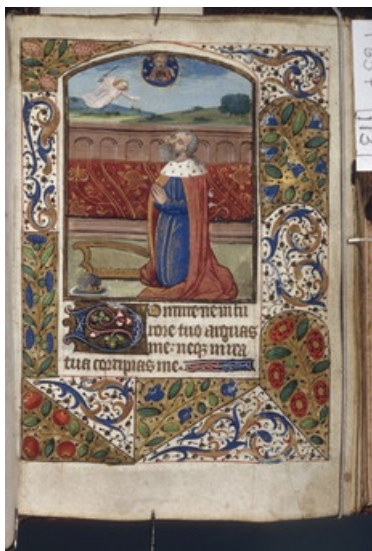 Domine ne in fu
rore tuo arguas
me: neqꝫ in ira
tua corripias me.